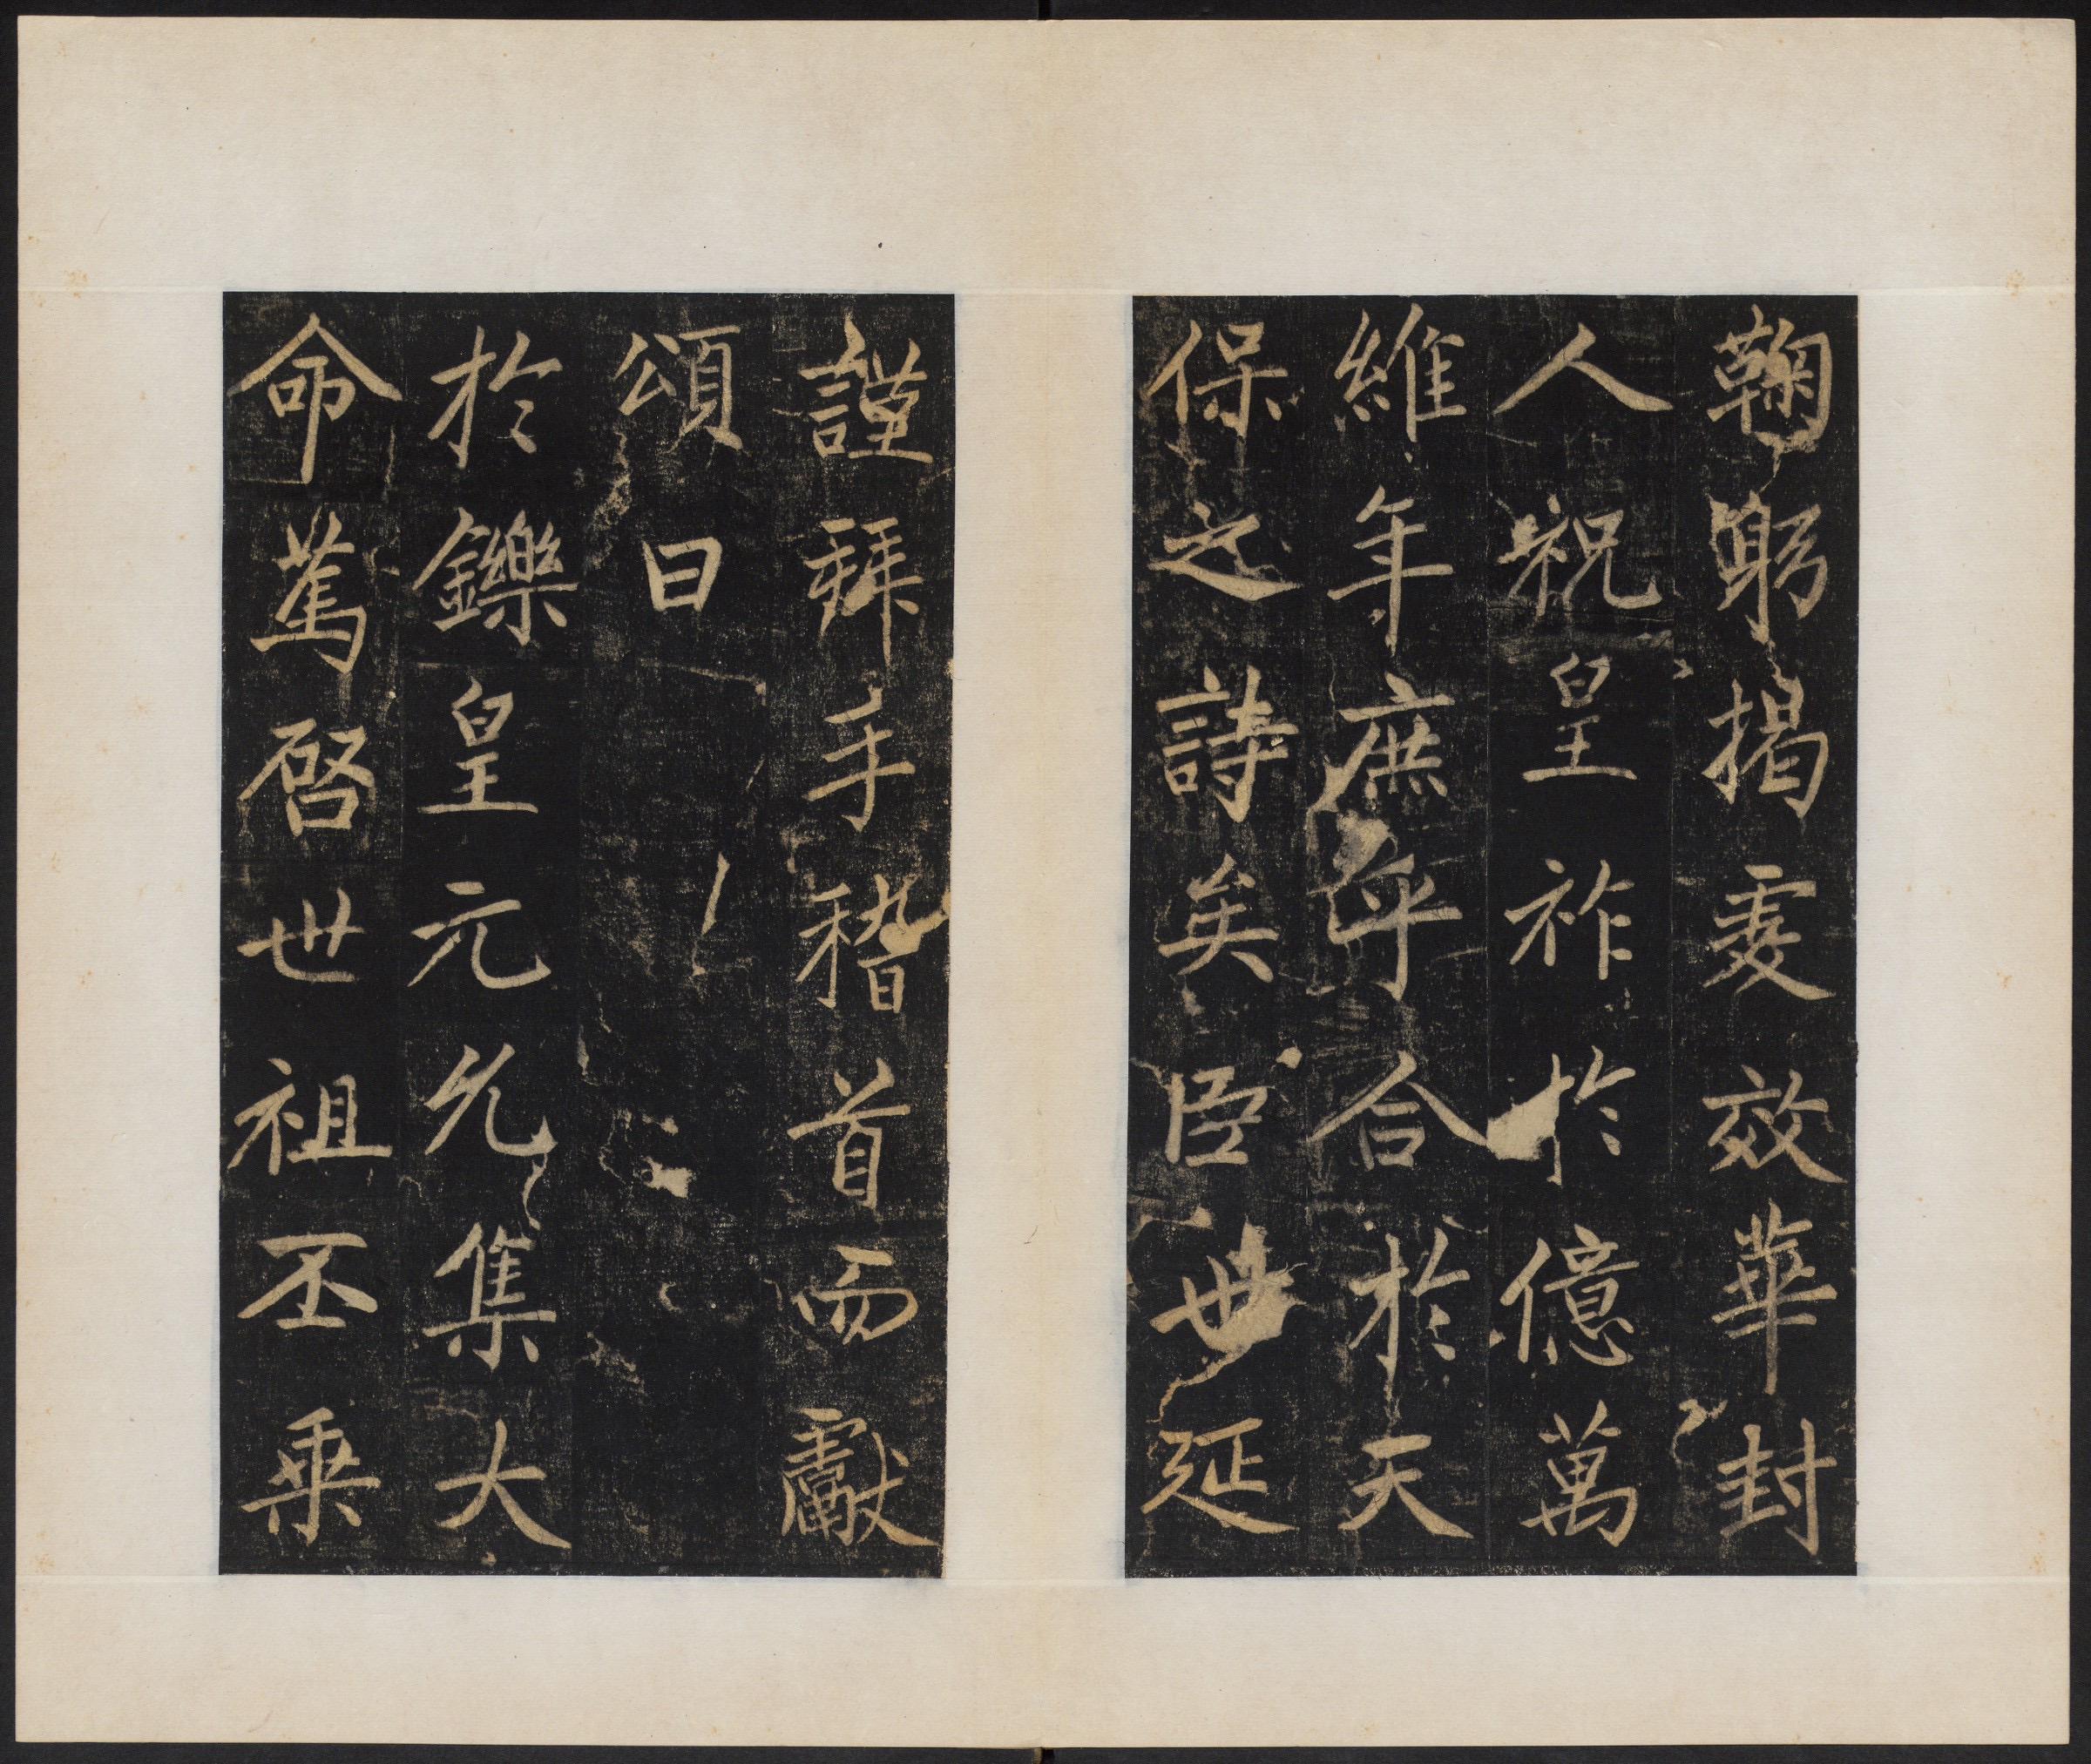 鞠躬揭虔效華封
人祝皇祚於億萬
維年庶乎合於天
保之詩矣臣世延
謹拜手稽首而獻
頌曰
於鑠皇元允集大
命篤啓世祖丕乗